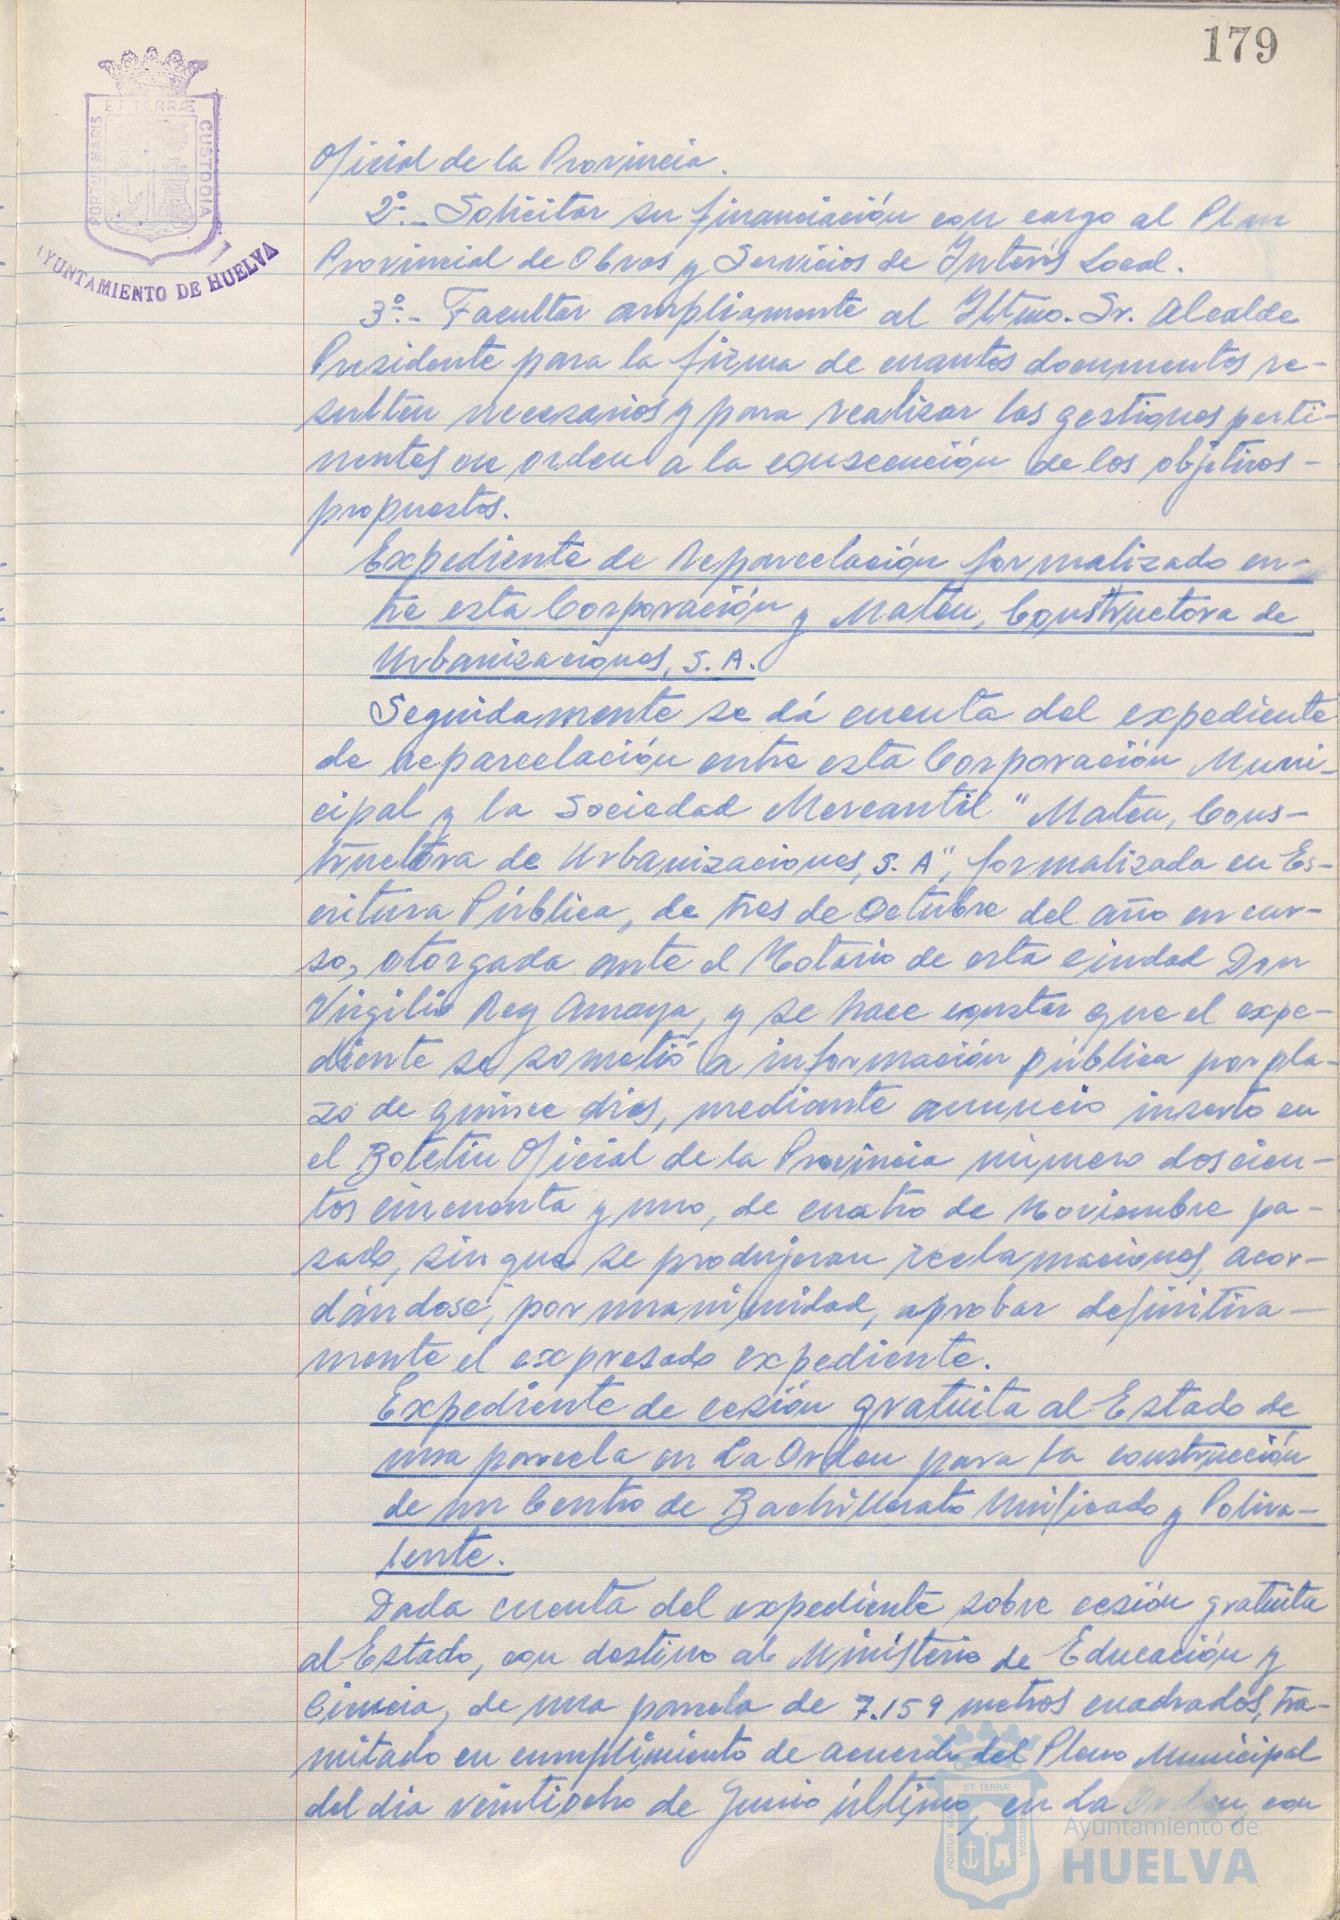 179
ET TERRÆ
PORTUS MARIS
CUSTODIA
AYUNTAMIENTO DE HUELVA
Oficial de la Provincia.
2º.- Solicitar su financiación con cargo al Plan
Provincial de Obras y Servicios de Interés Local.
3º.- Facultar ampliamente al Iltmo. Sr. Alcalde
Presidente para la firma de cuantos documentos re-
sulten necesarios y para realizar las gestiones perti-
nentes en orden a la consecución de los objetivos -
propuestos.
Expediente de Reparcelación formalizado en-
tre esta Corporación y Mateu, Constructora de
Urbanizaciones, S. A.
Seguidamente se dá cuenta del expediente
de Reparcelación entre esta Corporación Muni-
cipal y la Sociedad Mercantil "Mateu, Cons-
tructora de Urbanizaciones, S. A", formalizada en Es-
critura Pública, de tres de Octubre del año en cur-
so, otorgada ante el Notario de esta ciudad Don
Virgilio Reg Amaya, y se hace constar que el expe-
diente se sometió a información pública por pla-
zo de quince dias, mediante anuncio inserto en
el Boletin Oficial de la Provincia número doscien-
tos cincuenta y uno, de cuatro de Noviembre pa-
sado, sin que se produjeran reclamaciones, acor-
dándose, por unanimidad, aprobar definitiva-
mente el expresado expediente.
Expediente de cesión gratuita al Estado de
una parcela en La Orden para la construcción
de un Centro de Bachillerato Unificado y Poliva-
lente.
Dada cuenta del expediente sobre cesión gratuita
al Estado, con destino al Ministerio de Educación y
Ciencia, de una parcela de 7.159 metros cuadrados, tra-
mitado en cumplimiento de acuerdo del Pleno Municipal
del dia veintiocho de Junio último, en La Orden, con
ET TERRÆ
Ayuntamiento de
HUELVA